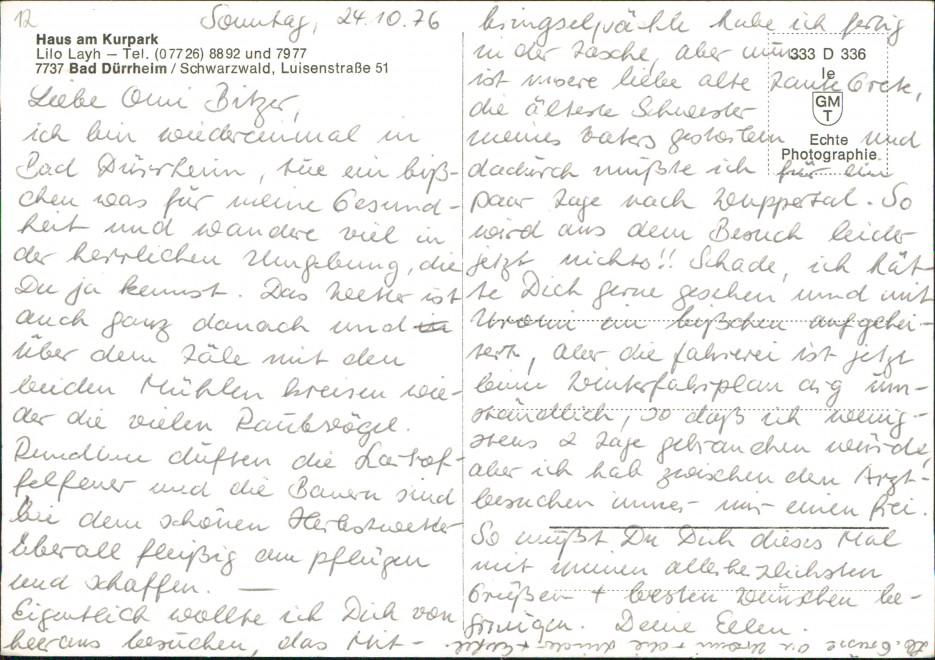 12
Sonntag, 24.10.76
Haus am Kurpark
Lilo Layh – Tel. (07726) 8892 und 7977
7737 Bad Dürrheim / Schwarzwald, Luisenstraße 51
Liebe Omi Bitzer,
ich bin wiedereinmal in
Bad Dürrheim, tue ein biß-
chen was für meine Gesund-
heit und wandere viel in
der herrlichen Umgebung, die
Du ja kennst. Das Wetter ist
auch ganz danach und
über dem Täle mit den
beiden Mühlen kreisen wie-
der die vielen Raubvögel.
Rundum duften die Kartof-
felfeuer und die Bauern sind
bei dem schönen Herbstwetter
überall fleißig am pflügen
und schaffen. —
Eigentlich wollte ich Dich von
hier aus besuchen, das Mit-
bringselpäckle habe ich fertig
in der Tasche, aber nun
ist unsere liebe alte Tante Grete,
die älteste Schwester
meines Vaters gestorben und
dadurch mußte ich für ein
paar Tage nach Wuppertal. So
wird aus dem Besuch leider
jetzt nichts!! Schade, ich hät-
te Dich gerne gesehen und mit
Uromi ein bißchen aufgehei-
tert, aber die Fahrerei ist jetzt
beim Winterfahrplan arg um-
ständlich, so daß ich wenig-
stens 2 Tage gebrauchen würde,
aber ich hab zwischen den Arzt-
besuchen immer nur einen frei.
So mußt Du Dich dieses Mal
mit meinen allerherzlichsten
Grüßen + besten Wünschen be-
gnügen. Deine Ellen.
Grüsse an Uromi + die Kinder +
333 D 336
le
GM
T
Echte
Photographie